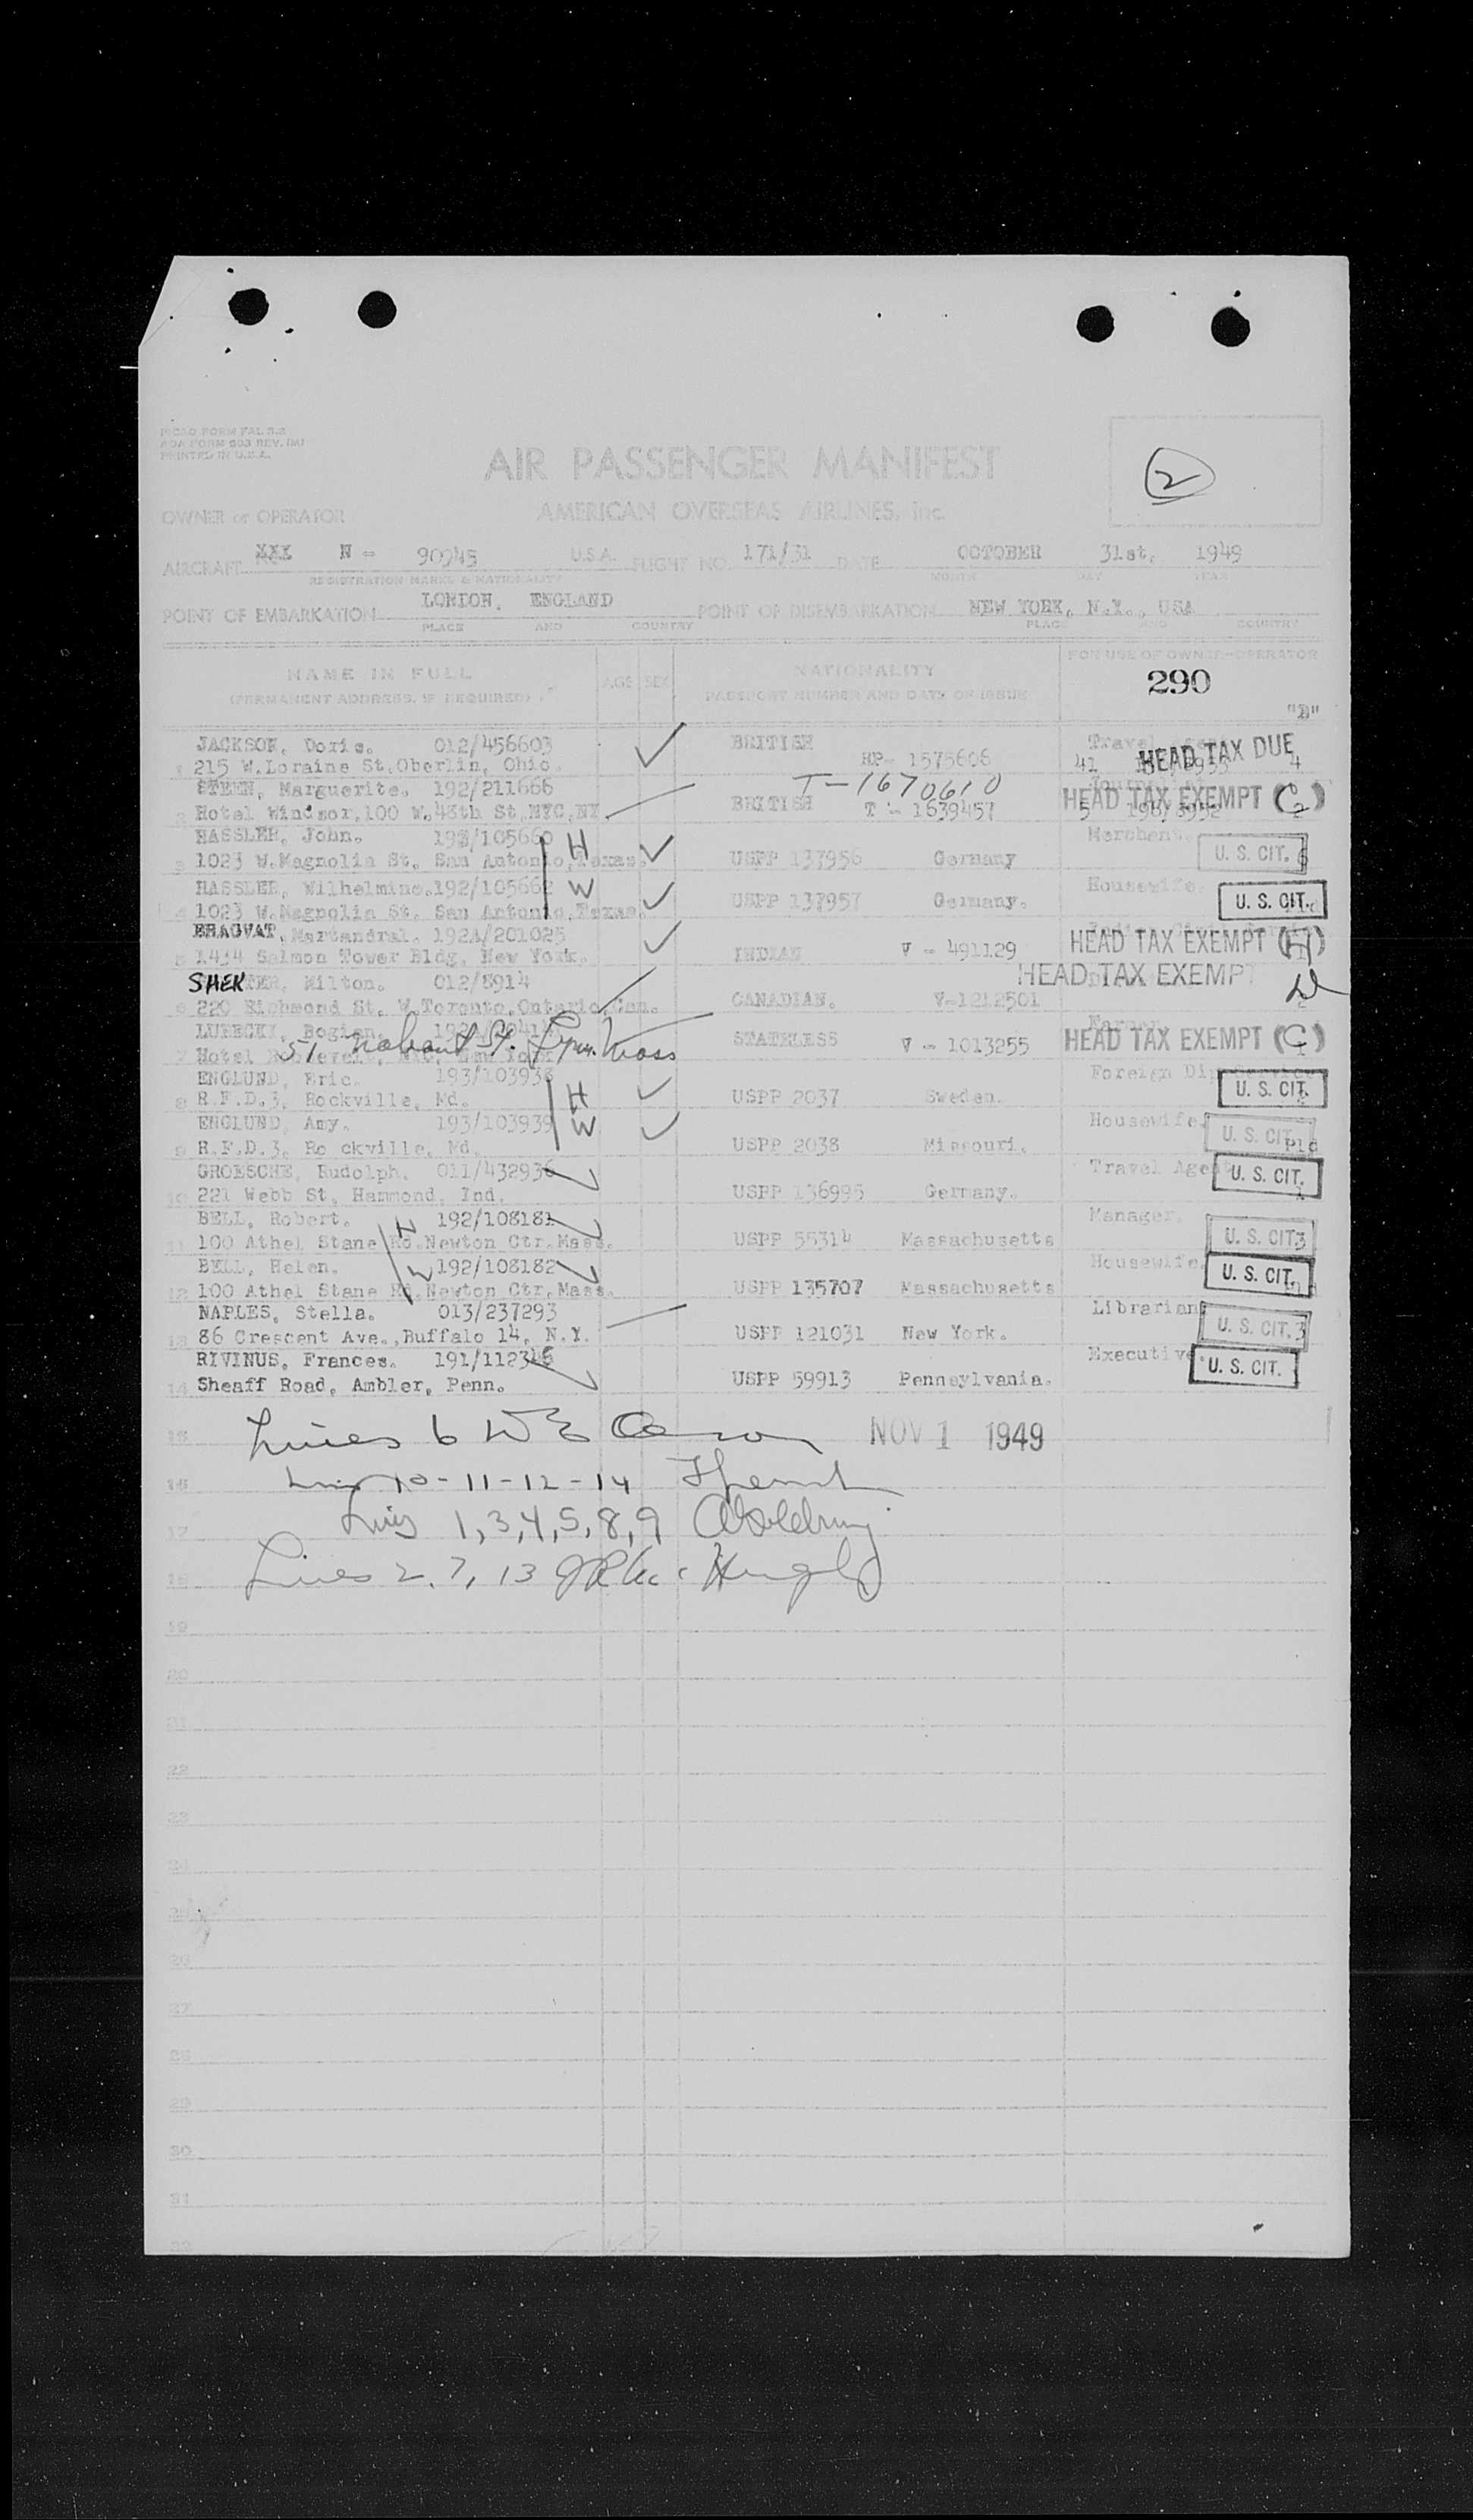 PICAO FORM FAL 2.2
AOA FORM 503 REV.
PRINTED IN U.S.A.
AIR PASSENGER MANIFEST
2
OWNER or OPERATOR AMERICAN OVERSEAS AIRLINES, Inc.
AIRCRAFT XXX N - 90945 U.S.A. FLIGHT NO. 171/31 DATE OCTOBER 31st, 1949
REGISTRATION MARKS & NATIONALITY MONTH DAY YEAR
POINT OF EMBARKATION LONDON, ENGLAND POINT OF DISEMBARKATION NEW YORK, N.Y., USA
PLACE AND COUNTRY PLACE AND COUNTRY
NAME IN FULL AGE SEX NATIONALITY FOR USE OF OWNER-OPERATOR
(PERMANENT ADDRESS, IF REQUIRED) PASSPORT NUMBER AND DATE OF ISSUE 290
"B"
JACKSON, Doris. 012/456603 BRITISH Travel HEAD TAX DUE
1 215 W.Loraine St.Oberlin, Ohio. RP- 1575606 41 4
STEEN, Marguerite. 192/211666 T-1670610
2 Hotel Windsor,100 W.48th St,NYC,NY BRITISH T - 1639457 HEAD TAX EXEMPT (C)
HASSLER, John. 193/105660 H Merchant.
3 1023 W.Magnolia St. San Antonio,Texas. USPP 137956 Germany U. S. CIT.
HASSLER, Wilhelmine.192/105662 W Housewife.
4 1023 W.Magnolia St. San Antonio,Texas. USPP 137957 Germany. U. S. CIT.
BHAGVAT, Martandral. 192A/201025
5 1414 Salmon Tower Bldg, New York. INDIAN V - 491129 HEAD TAX EXEMPT (H)
SHEK TER, Milton. 012/8914 HEAD TAX EXEMPT
6 220 Richmond St. W.Toronto,Ontario,Can. CANADIAN. V-1212501
LUBECKI, Bogian.
7 Hotel 51 Nahant St. Lynn Mass STATELESS V - 1013255 HEAD TAX EXEMPT (C)
ENGLUND, Eric. 193/103938 H Foreign
8 R.F.D.3, Rockville, Md. USPP 2037 Sweden. U. S. CIT.
ENGLUND, Amy. 193/103939 W Housewife.
9 R.F.D.3, Ro ckville, Md. USPP 2038 Missouri. U. S. CIT.
GROESCHE, Rudolph. 011/432936 Travel Agent
10 221 Webb St, Hammond, Ind. USPP 136995 Germany. U. S. CIT.
BELL, Robert. H 192/108181 Manager.
11 100 Athel Stane Rd.Newton Ctr.Mass. USPP 55314 Massachusetts U. S. CIT.3
BELL, Helen. W 192/108182 Housewife.
12 100 Athel Stane Rd.Newton Ctr.Mass. USPP 135707 Massachusetts U. S. CIT.
NAPLES, Stella. 013/237293 Librarian
13 86 Crescent Ave.,Buffalo 14, N.Y. USPP 121031 New York. U. S. CIT.3
RIVINUS, Frances. 191/112346 Executive
14 Sheaff Road, Ambler, Penn. USPP 59913 Pennsylvania. U. S. CIT.
15 Lines 6 NOV 1 1949
16 10-11-12-14
17 1,3,4,5,8,9
18 Lines 2, 7, 13
19
20
21
22
23
24
25
26
27
28
29
30
31
32